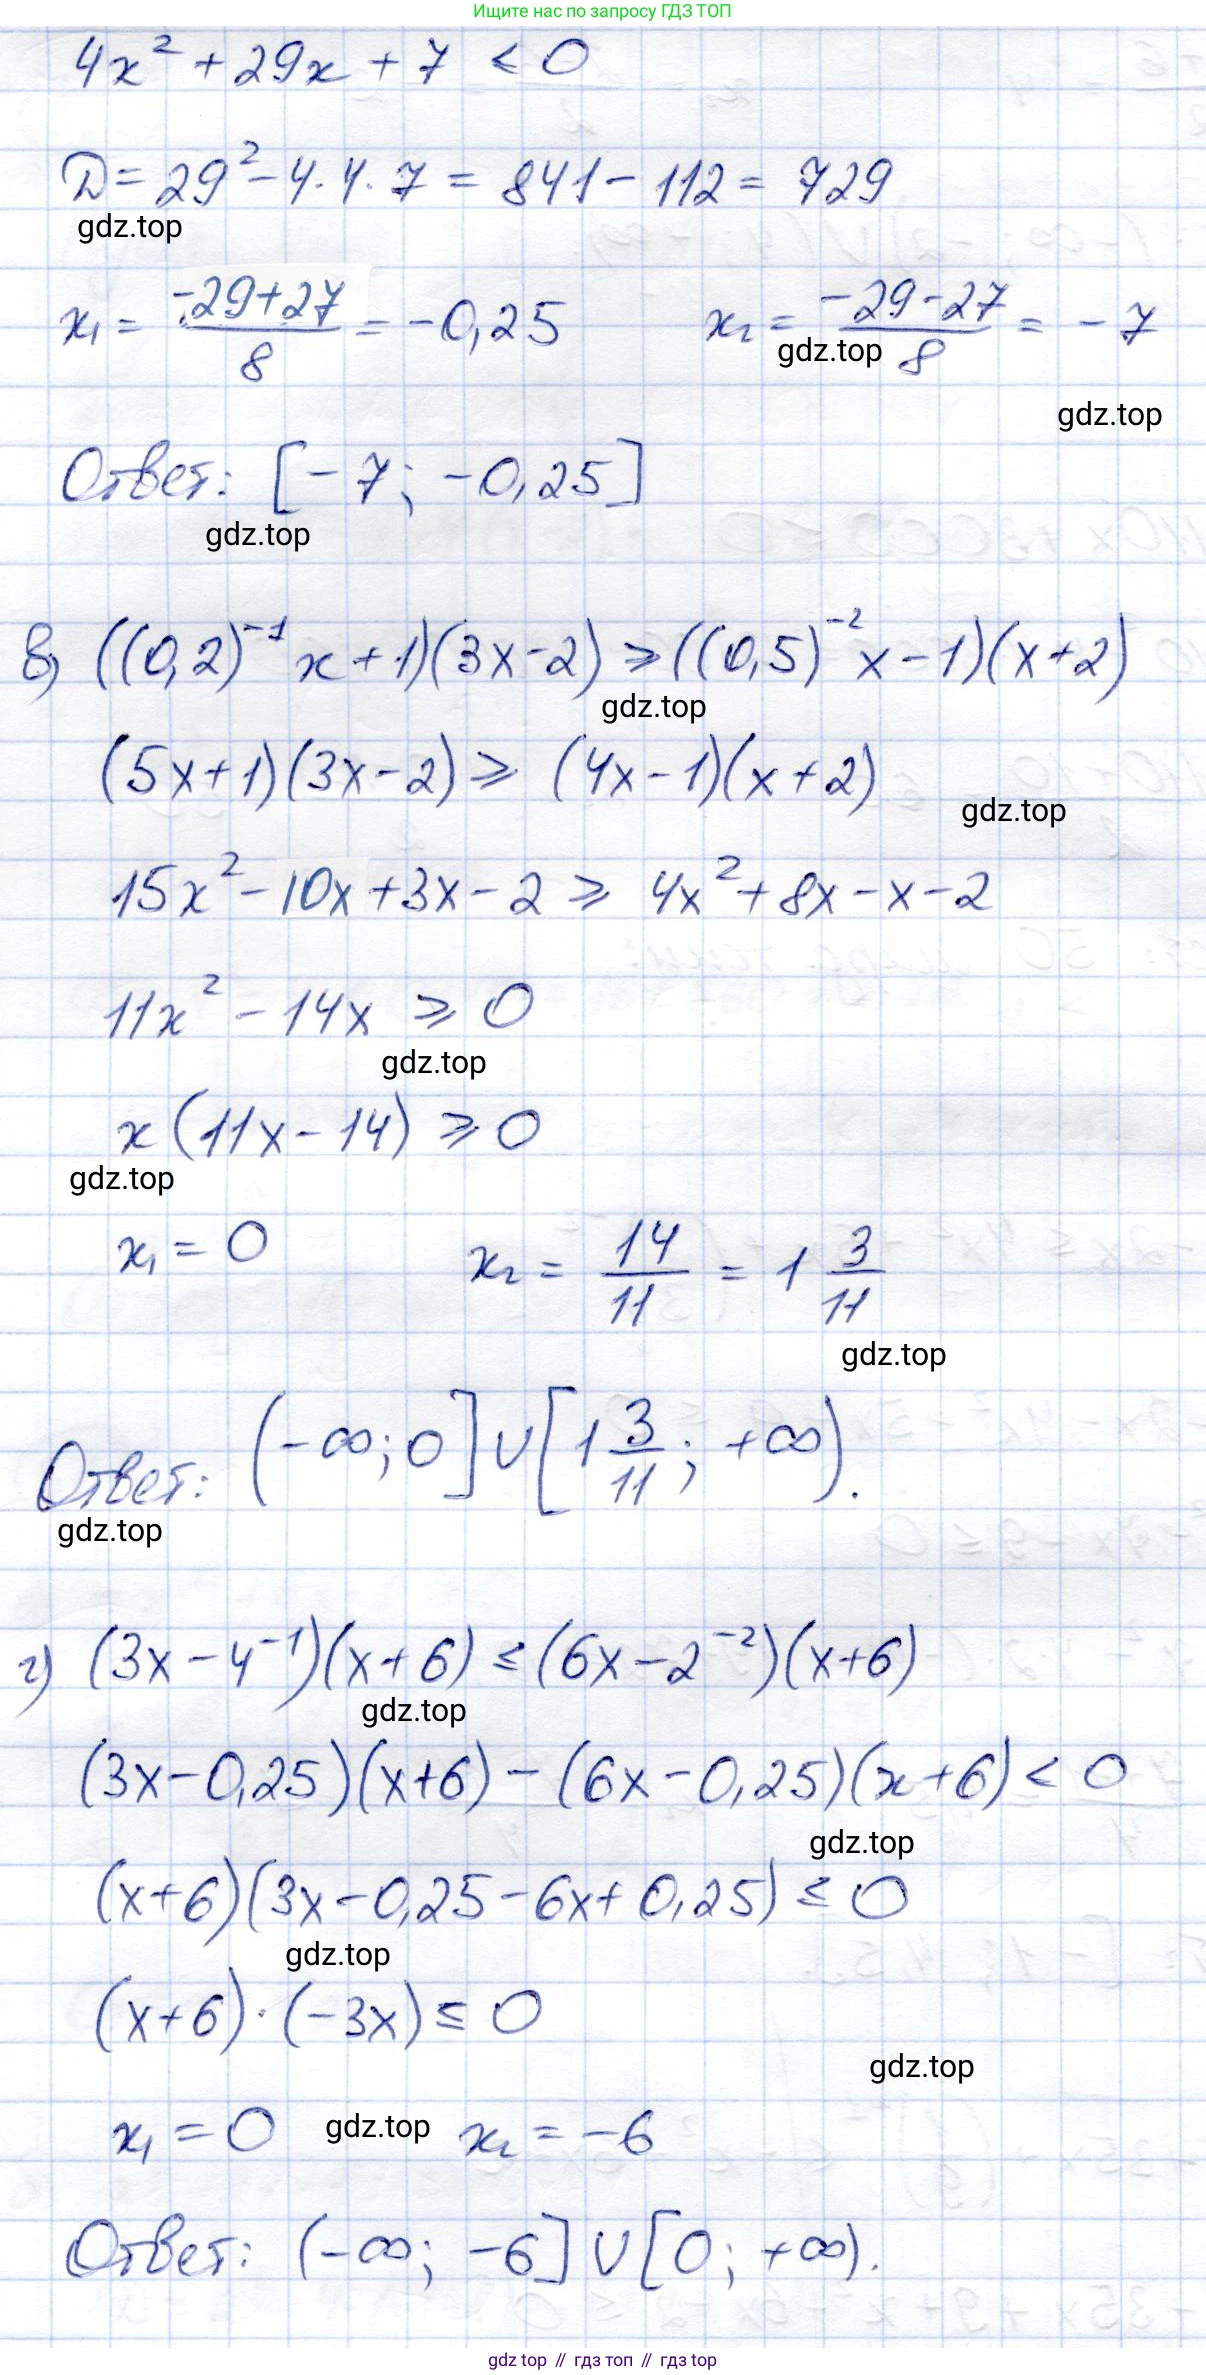 Ищите нас по запросу ГДЗ ТОП
4x² + 29x + 7 ≤ 0
D = 29² - 4·4·7 = 841 - 112 = 729
gdz.top
x₁ = (-29+27)/8 = -0,25 x₂ = (-29-27)/8 = -7
gdz.top
gdz.top
Ответ: [-7; -0,25]
gdz.top
в) ((0,2)⁻¹x + 1)(3x - 2) ≥ ((0,5)⁻²x - 1)(x + 2)
gdz.top
(5x + 1)(3x - 2) ≥ (4x - 1)(x + 2)
gdz.top
15x² - 10x + 3x - 2 ≥ 4x² + 8x - x - 2
11x² - 14x ≥ 0
gdz.top
x(11x - 14) ≥ 0
gdz.top
x₁ = 0 x₂ = 14/11 = 1 3/11
gdz.top
Ответ: (-∞; 0] ∪ [1 3/11; +∞).
gdz.top
г) (3x - 4⁻¹)(x + 6) ≤ (6x - 2⁻²)(x + 6)
gdz.top
(3x - 0,25)(x + 6) - (6x - 0,25)(x + 6) < 0
gdz.top
(x + 6)(3x - 0,25 - 6x + 0,25) ≤ 0
gdz.top
(x + 6)·(-3x) ≤ 0
gdz.top
x₁ = 0 gdz.top x₂ = -6
Ответ: (-∞; -6] ∪ [0; +∞).
gdz top // гдз топ // гдз top